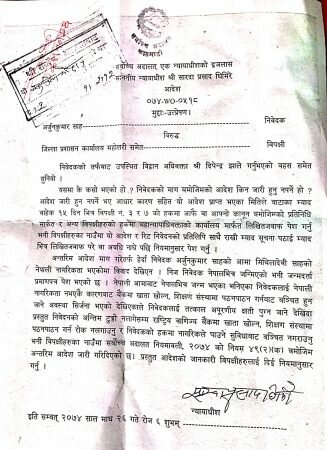 सर्वोच्च अदालत एक न्यायाधीशको इजलास
माननीय न्यायाधीश श्री सारदा प्रसाद घिमिरे
आदेश
०७४-WO-०५१८
मुद्दाः- उत्प्रेषण।
अर्जुनकुमार साह
निवेदक
विरुद्ध
जिल्ला प्रशासन कार्यालय महोत्तरी समेत
बिपक्षी
निवेदकको तर्फबाट उपस्थित विद्वान अधिवक्ता श्री दिपेन्द्र झाले गर्नुभएको बहस समेत
सुनियो ।
यसमा के कसो भएको हो ? निवेदकको माग बमोजिमको आदेश किन जारी हुनु नपर्ने हो ?
आदेश जारी हुन नपर्ने भए आधार कारण सहित यो आदेश प्राप्त भएका मितिले बाटाका म्याद
बाहेक १५ दिन भित्र विपक्षी नं. ३ र ७ को हकमा आफै वा आफ्नो कानुन बमोजिमको प्रतिनिधि
मार्फत र अन्य विपक्षीहरुको हकमा महान्यायाधिवक्ताको कार्यालय मार्फत लिखितजवाफ पेश गर्नु
भनी विपक्षीहरुका नाउँमा यो आदेश र रिट निवेदनको प्रतिलिपि साथै राखी म्याद सूचना पठाई म्याद
भित्र लिखितजवाफ परे वा अवधि नाघे पछि नियमानुसार पेश गर्नु ।
अन्तरिम आदेश माग गरेतर्फ हेर्दा निवेदक अर्जुनकुमार साहको आमा मिथिलादेवी साहको
नेपाली नागरिकता भएकोमा विवाद देखिएन । निज निवेदक नेपालभित्र जन्मिएको भनी जन्मदर्ता
प्रमाणपत्र पेश भएको छ । नेपाली आमाबाट नेपालभित्र जन्म भएका भनिएका निवेदकलाई नेपाली
नागरिकता नभएकै कारणवाट बैंकमा खाता खोल्न, शिक्षण संस्थामा पठनपाठन गर्नबाट बञ्चित हुन
जाने अवस्था सिर्जना भएको देखिएकाले निवेदकलाई तत्काल अपूरणीय क्षती पुग्न जाने देखिँदा
प्रस्तुत निवेदनको अन्तिम टुङ्गो नलागेसम्म राष्ट्रिय बाणिज्य बैंकमा खाता खोल्न, शिक्षण संस्थामा
पठनपाठन गर्न रोक नलगाउनु र निवेदकको हकमा नागरिकले पाउने सुबिधाबाट बञ्चित नगराउनु
भनी बिपक्षीहरुका नाउँमा सर्वोच्च अदालत नियमावली, २०७४ को नियम ४९(२)(क) बमोजिम
अन्तरिम आदेश जारी गरिदिएको छ । प्रस्तुत आदेशको जानकारी बिपक्षीहरुलाई दिई नियमानुसार
गर्नु ।
न्यायाधीश
इति सम्बत् २०७४ साल माघ २६ गते रोज ६ शुभम्